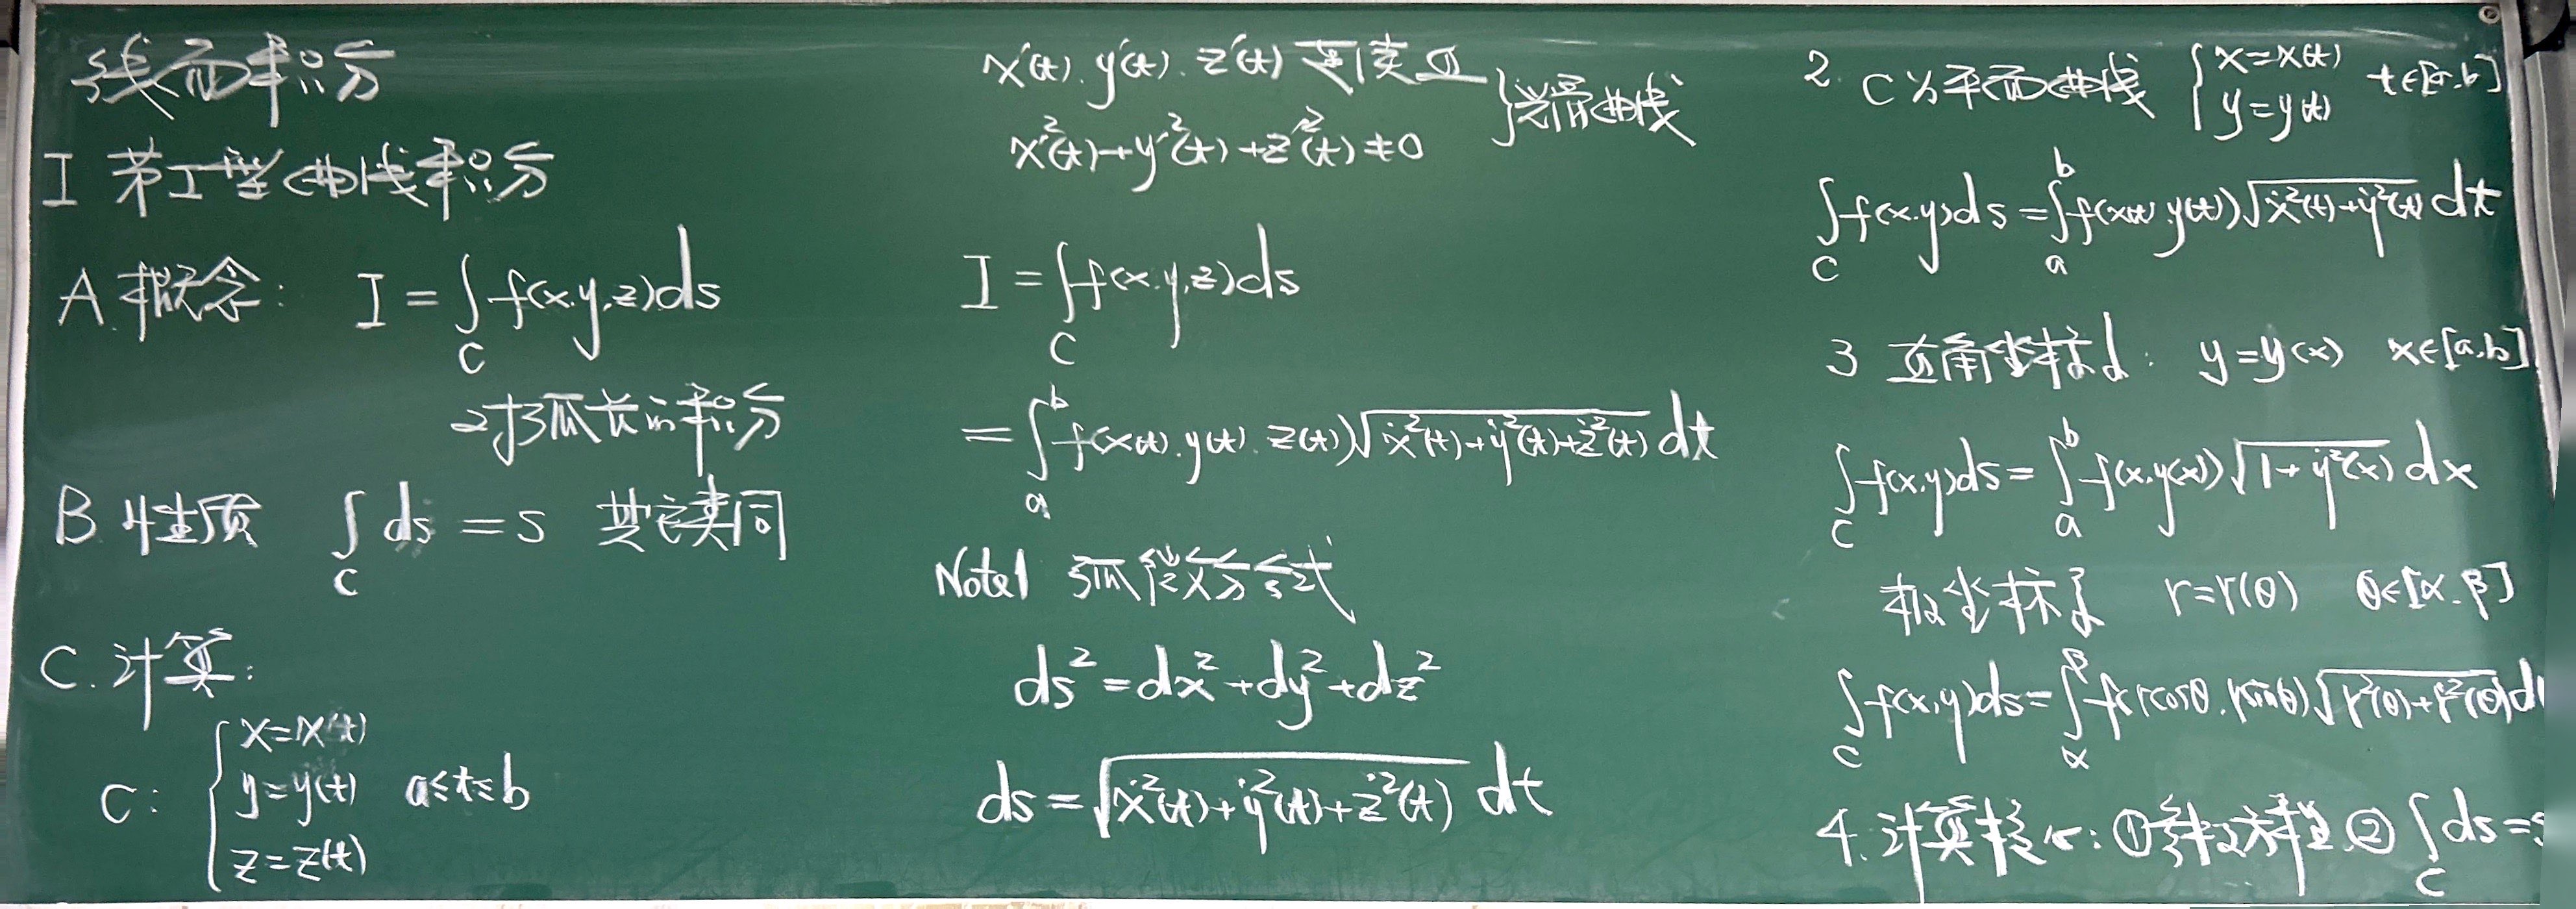 线面积分
I 第I型曲线积分
A.概念： I = ∫_C f(x,y,z)ds
对弧长的积分
B.性质 ∫_C ds = s 其它类同
C.计算:
C: { x=x(t)
y=y(t) a≤t≤b
z=z(t)
x'(t).y'(t).z'(t)连续且
x'²(t)+y'²(t)+z'²(t)≠0 }光滑曲线
I = ∫_C f(x.y,z)ds
= ∫_a^b f(x(t).y(t).z(t))√(ẋ²(t)+ẏ²(t)+ż²(t)) dt
Note1 弧微分公式
ds²=dx²+dy²+dz²
ds=√(ẋ²(t)+ẏ²(t)+ż²(t)) dt
2. C为平面曲线 { x=x(t)
y=y(t) t∈[a.b]
∫_C f(x.y)ds = ∫_a^b f(x(t) y(t))√(ẋ²(t)+ẏ²(t)) dt
3 直角坐标: y=y(x) x∈[a,b]
∫_C f(x,y)ds = ∫_a^b f(x,y(x))√(1+ẏ²(x)) dx
极坐标系 r=r(θ) θ∈[α.β]
∫_C f(x,y)ds = ∫_α^β f(rcosθ.rsinθ)√(r²(θ)+ṙ²(θ)) d
4.计算核心: ①参数方程 ② ∫_C ds=s